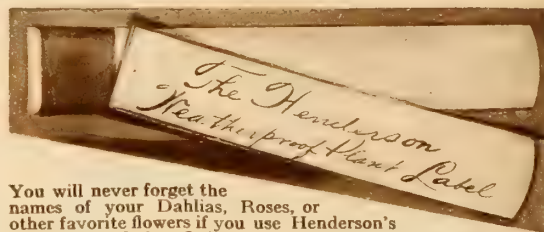 The Henderson
Weatherproof Plant Label
You will never forget the
names of your Dahlias, Roses, or
other favorite flowers if you use Henderson's